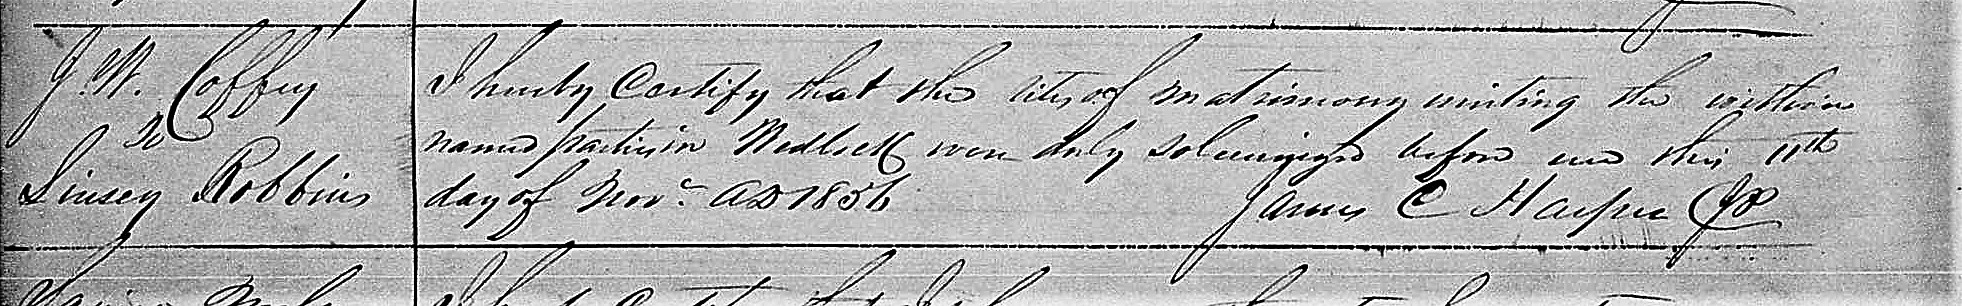 J. W. Coffey
To
Linsey Robbins
I hereby Certify that the rites of matrimony uniting the within
named parties in Wedlock were duly solemnized before me this 11th
day of Nov. AD 1856
James C Harper JP